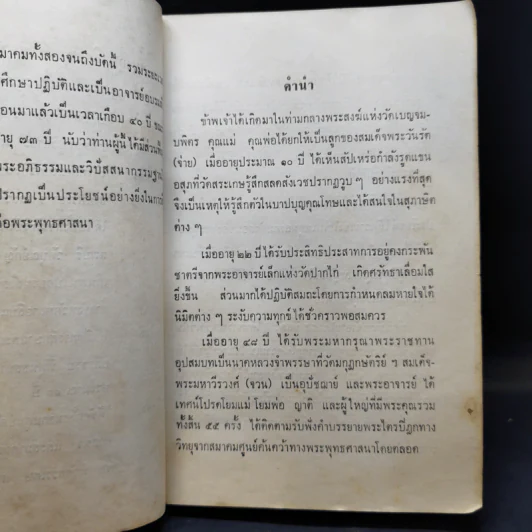 มาคมทั้งสองจนถึงบัดนี้ รวมระยะเวลา
ศึกษาปฏิบัติและเป็นอาจารย์อบรม
อนมาแล้วเป็นเวลาเกือบ ๔๐ ปี
ายุ ๗๓ ปี นับว่าท่านผู้นี้ได้มีส่วน
ระอภิธรรมและวิปัสสนากรรมฐาน
ปรากฏเป็นประโยชน์อย่างยิ่งในการ
่อพระพุทธศาสนา
คำนำ
ข้าพเจ้าได้เกิดมาในท่ามกลางพระสงฆ์แห่งวัดเบญจม-
บพิตร คุณแม่ คุณพ่อได้ยกให้เป็นลูกของสมเด็จพระวันรัต
(จ่าย) เมื่ออายุประมาณ ๑๐ ปี ได้เห็นสัปเหร่อกำลังรูดแขน
อสุภที่วัดสระเกษรู้สึกสลดสังเวชปรากฏวูบ ๆ อย่างแรงที่สุด
จึงเป็นเหตุให้รู้สึกตัวในบาปบุญคุณโทษและได้สนใจในสุภาษิต
ต่าง ๆ
เมื่ออายุ ๒๒ ปี ได้รับประสิทธิประสาทการอยู่คงกระพัน
ชาตรีจากพระอาจารย์เล็กแห่งวัดปากไก่ เกิดศรัทธาเลื่อมใส
ยิ่งขึ้น ส่วนมากได้ปฏิบัติสมถะโดยการกำหนดลมหายใจได้
นิมิตต่าง ๆ ระงับความทุกข์ได้ชั่วคราวพอสมควร
เมื่ออายุ ๔๘ ปี ได้รับพระมหากรุณาพระราชทาน
อุปสมบทเป็นนาคหลวงจำพรรษาที่วัดมกุฏกษัตริย์ ฯ สมเด็จ-
พระมหาวีรวงศ์ (จวน) เป็นอุปัชฌาย์ และพระอาจารย์ ได้
เทศน์โปรดโยมแม่ โยมพ่อ ญาติ และผู้ใหญ่ที่มีพระคุณรวม
ทั้งสิ้น ๕๕ ครั้ง ได้ติดตามรับฟังคำบรรยายพระไตรปิฎกทาง
วิทยุจากสมาคมศูนย์ค้นคว้าทางพระพุทธศาสนาโดยตลอด